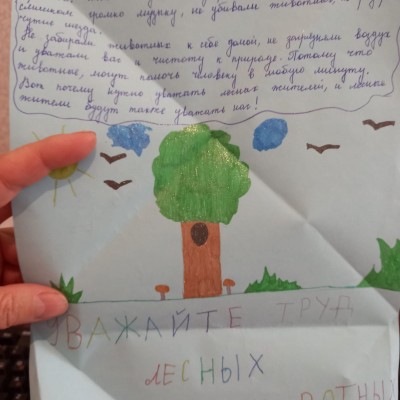 слишком громко музыку, не убивали животных, и
Не забирали животных к себе домой, не загрязняли воздух
и уважали вас и чистоту к природе. Потому что
животные, могут помочь человеку в любую минуту.
Вот почему нужно уважать лесных жителей, и лесные
жители будут также уважать нас!
УВАЖАЙТЕ ТРУД
ЛЕСНЫХ